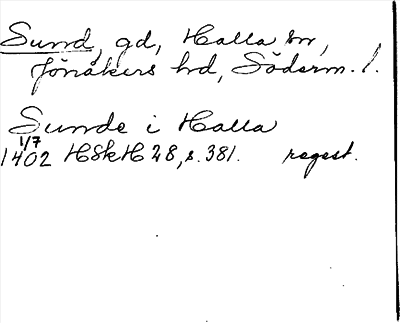 Sund, gd, Halla sn,
Jönåkers hd, Söderm. l.
Sunde i Halla
1/7
1402 HSkH 28, s. 381. regest.